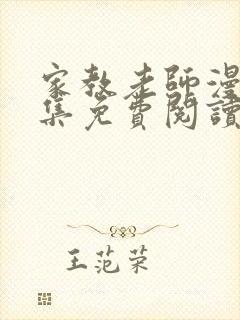 家教老師漫
集免費閱讀
王范荣